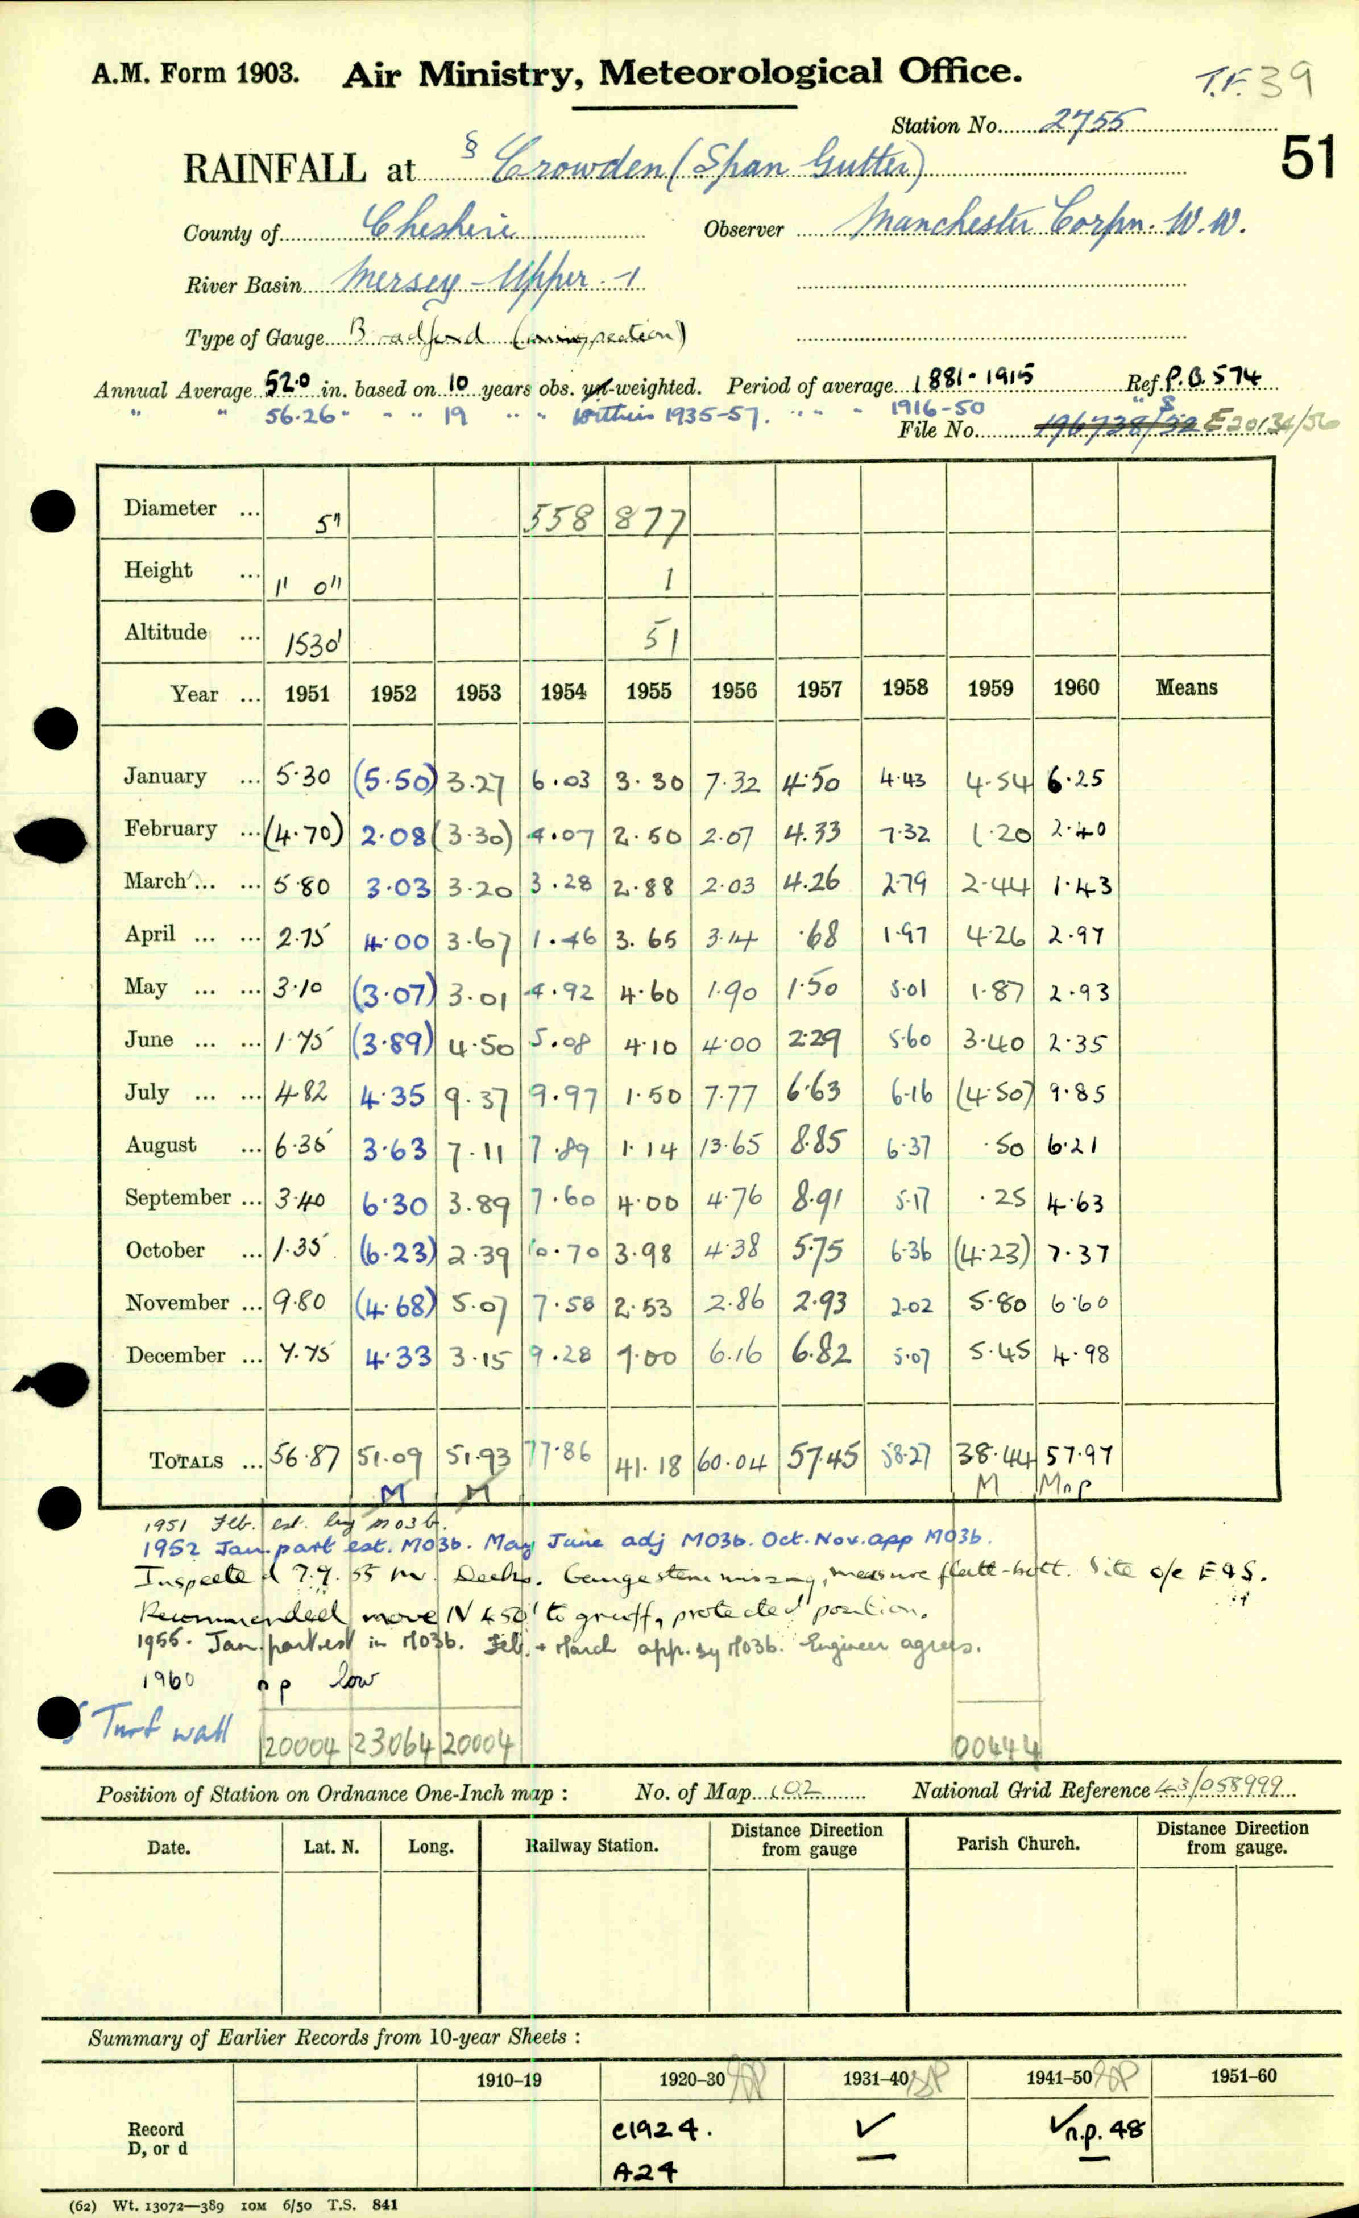 A.M. Form 1903. Air Ministry, Meteorological Office. T.F. 39
Station No. 2755
51
RAINFALL at § Crowden (Span Gutter)
County of Cheshire Observer Manchester Corpn. W.W.
River Basin Mersey - Upper - 1
Type of Gauge Bradford (on inspection)
Annual Average 52.0 in. based on 10 years obs. un-weighted. Period of average 1881-1915 Ref. P.B. 574
" " 56.26 " " " 19 " " within 1935-57. " " " 1916-50 " S
File No. 196738/52 E20134/56
Diameter ... 5" 558 877
Height ... 1' 0" 1
Altitude ... 1530' 51
Year ... 1951 1952 1953 1954 1955 1956 1957 1958 1959 1960 Means
January ... 5.30 (5.50) 3.27 6.03 3.30 7.32 4.50 4.43 4.54 6.25
February ... (4.70) 2.08 (3.30) 4.07 2.50 2.07 4.33 7.32 1.20 2.40
March ... ... 5.80 3.03 3.20 3.28 2.88 2.03 4.26 2.79 2.44 1.43
April ... ... 2.75 4.00 3.67 1.46 3.65 3.14 .68 1.97 4.26 2.97
May ... ... 3.10 (3.07) 3.01 4.92 4.60 1.90 1.50 5.01 1.87 2.93
June ... ... 1.75 (3.89) 4.50 5.08 4.10 4.00 2.29 5.60 3.40 2.35
July ... ... 4.82 4.35 9.37 9.97 1.50 7.77 6.63 6.16 (4.50) 9.85
August ... 6.35 3.63 7.11 7.89 1.14 13.65 8.85 6.37 .50 6.21
September ... 3.40 6.30 3.89 7.60 4.00 4.76 8.91 5.17 .25 4.63
October ... 1.35 (6.23) 2.39 10.70 3.98 4.38 5.75 6.36 (4.23) 7.37
November ... 9.80 (4.68) 5.07 7.58 2.53 2.86 2.93 2.02 5.80 6.60
December ... 7.75 4.33 3.15 9.28 7.00 6.16 6.82 5.07 5.45 4.98
TOTALS ... 56.87 51.09 51.93 77.86 41.18 60.04 57.45 58.27 38.44 57.97
M M M Mnp
1951 Feb. est. by M03b.
1952 Jan. part est. M03b. May June adj M03b. Oct. Nov. app M03b.
Inspected 7.9.55 Mr. Deeks. Gauge stem missing, measure flatt-bott. Site o/e E & S.
Recommended move N 450' to gruff, protected position.
1955. Jan. part est in M03b. Feb. + March app. by M03b. Engineer agrees.
1960 np low
§ Turf wall 20004 23064 20004 00444
Position of Station on Ordnance One-Inch map : No. of Map 102 National Grid Reference 43/058999
Date. Lat. N. Long. Railway Station. Distance Direction from gauge Parish Church. Distance Direction from gauge.
Summary of Earlier Records from 10-year Sheets :
1910-19 1920-30 1931-40 1941-50 1951-60
Record D, or d c1924. ✓ ✓n.p. 48
A24
(62) Wt. 13072—389 10M 6/50 T.S. 841